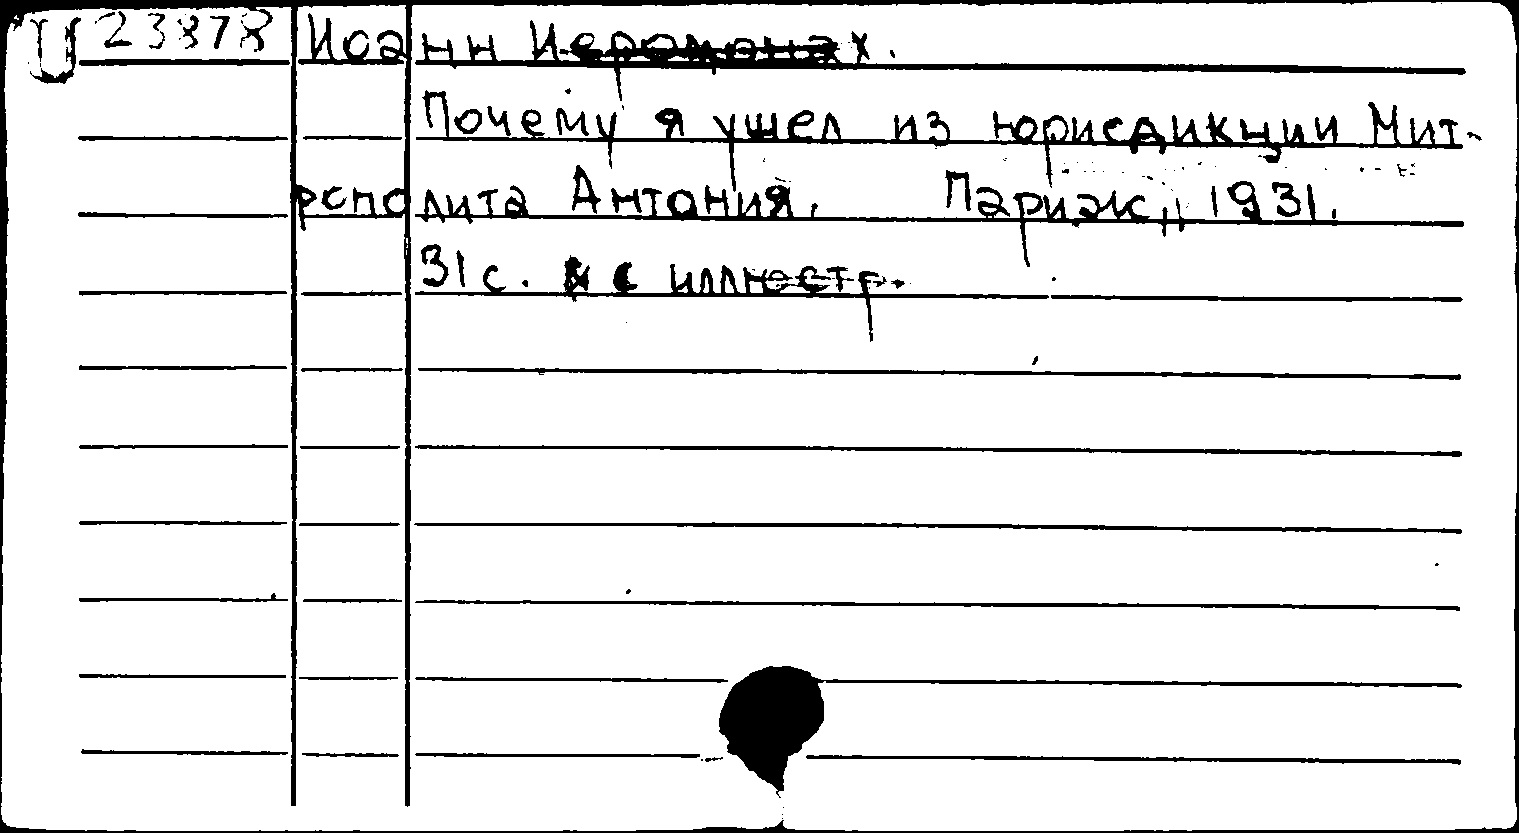 23878 Иоанн Иеромонах.
Почему я ушел из юрисдикции Мит-
рополита Антония. Париж, 1931.
31 с. с иллюстр.